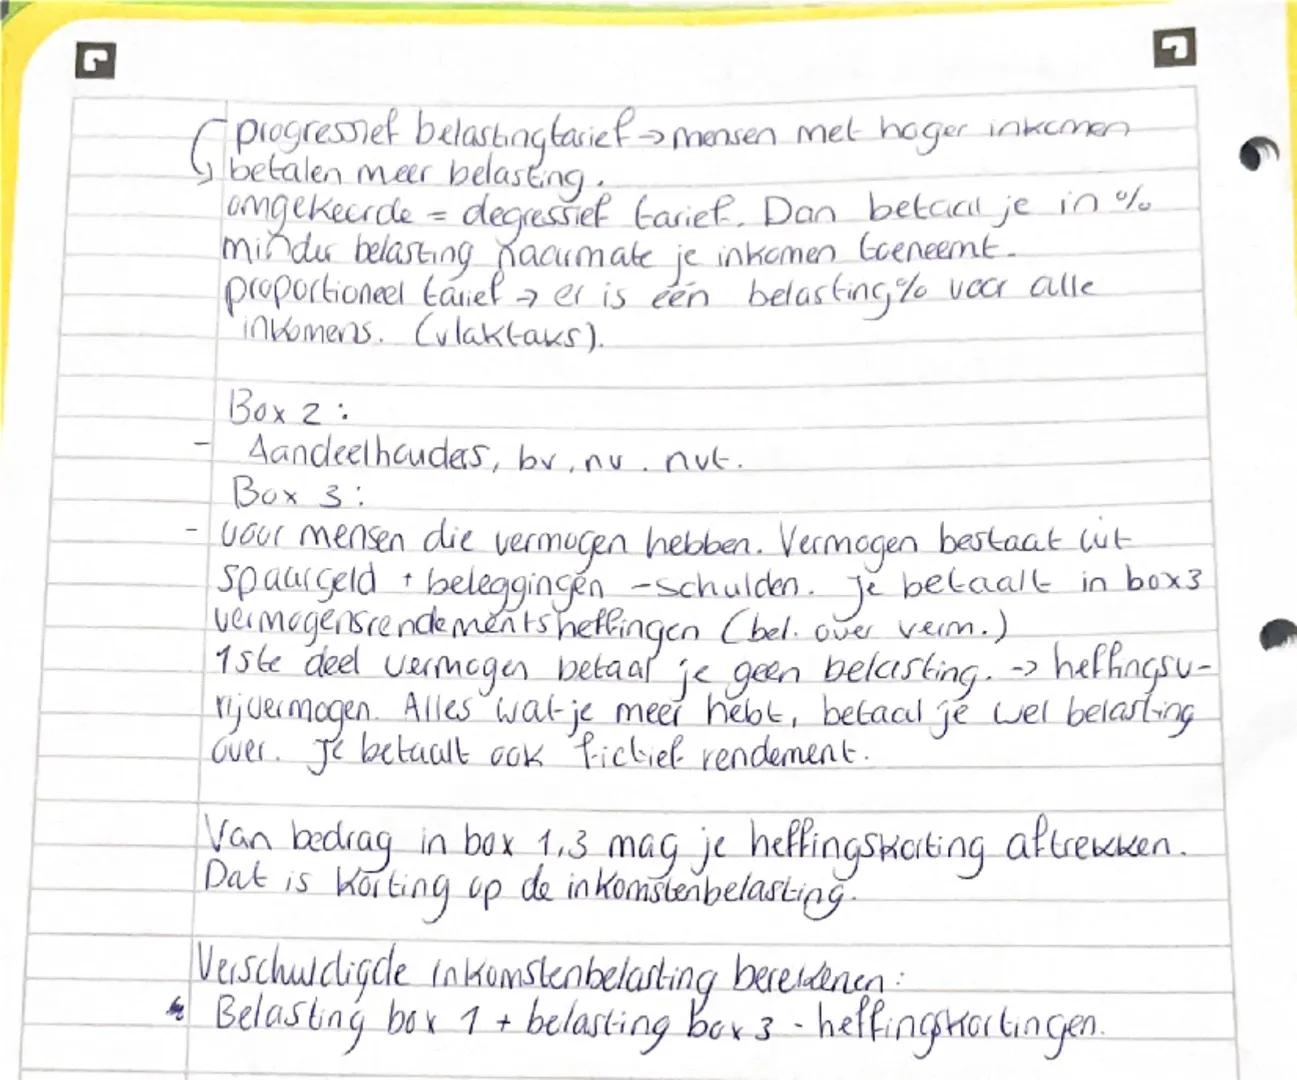 progressief belastingtarief → mensen met hoger inkomen
betalen meer belasting.
omgekeerde = degressief tarief. Dan betaal je in %
minder belasting naarmate je inkomen toeneemt.
proportioneel tarief → er is één belasting% voor alle
inkomens. (vlaktaks).
Box 2:
- Aandeelhouders, bv, nv. nvt.
Box 3:
- voor mensen die vermogen hebben. Vermogen bestaat uit
spaargeld + beleggingen - schulden. Je betaalt in box3
vermogensrendementsheffingen (bel. over verm.)
1ste deel vermogen betaal je geen belasting. -> heffingsv-
rijvermogen. Alles wat je meer hebt, betaal je wel belasting
over. Je betaalt ook fictief rendement.
Van bedrag in box 1,3 mag je heffingskorting aftrekken.
Dat is korting op de inkomstenbelasting.
Verschuldigde inkomstenbelasting berekenen:
Belasting box 1 + belasting box 3 - heffingskortingen.